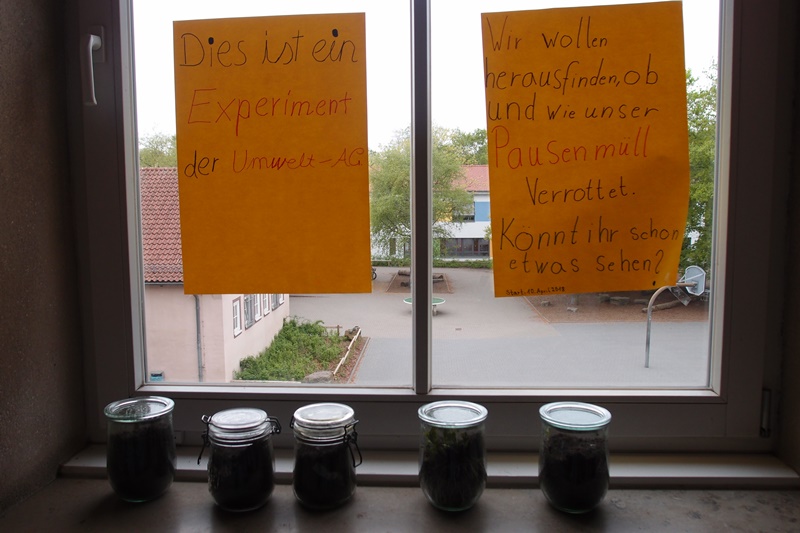 Dies ist ein
Experiment
der Umwelt-AG
Wir wollen
herausfinden, ob
und wie unser
Pausenmüll
Verrottet.
Könnt ihr schon
etwas sehen?